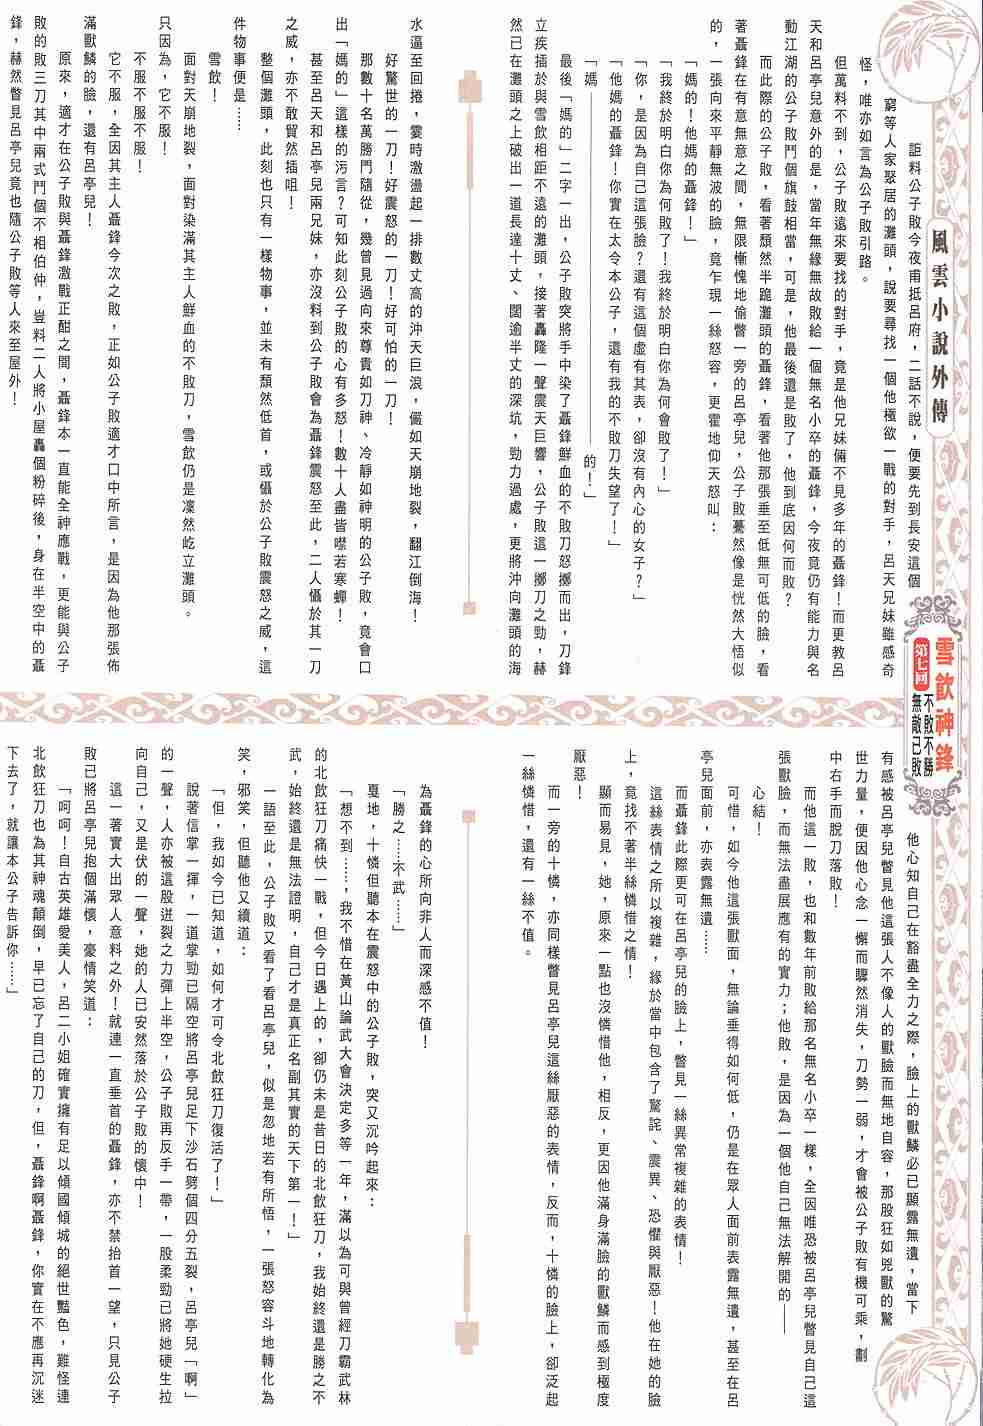 風雲小說外傳
雪飲神鋒
第七回
不敗不勝
無敵已敗
詎料公子敗今夜甫抵呂府，二話不說，便要先到長安這個
窮等人家聚居的灘頭，說要尋找一個他極欲一戰的對手，呂天兄妹雖感奇
怪，唯亦如言為公子敗引路。
但萬料不到，公子敗遠來要找的對手，竟是他兄妹倆不見多年的聶鋒！而更教呂
天和呂亭兒意外的是，當年無緣無故敗給一個無名小卒的聶鋒，今夜竟仍有能力與名
動江湖的公子敗鬥個旗鼓相當，可是，他最後還是敗了，他到底因何而敗？
而此際的公子敗，看著頹然半跪灘頭的聶鋒，看著他那張垂至低無可低的臉，看
著聶鋒在有意無意之間，無限慚愧地偷瞥一旁的呂亭兒，公子敗驀然像是恍然大悟似
的，一張向來平靜無波的臉，竟乍現一絲怒容，更霍地仰天怒叫：
「媽的！他媽的聶鋒！」
「我終於明白你為何敗了！我終於明白你為何會敗了！」
「你，是因為自己這張臉？還有這個虛有其表，卻沒有內心的女子？」
「他媽的聶鋒！你實在太令本公子，還有我的不敗刀失望了！」
「媽————————————的！」
最後「媽的」二字一出，公子敗突將手中染了聶鋒鮮血的不敗刀怒擲而出，刀鋒
立疾插於與雪飲相距不遠的灘頭，接著轟隆一聲震天巨響，公子敗這一擲刀之勁，赫
然已在灘頭之上破出一道長達十丈、闊逾半丈的深坑，勁力過處，更將沖向灘頭的海
水逼至回捲，霎時激盪起一排數丈高的沖天巨浪，儼如天崩地裂，翻江倒海！
好驚世的一刀！好震怒的一刀！好可怕的一刀！
那數十名萬勝門隨從，幾曾見過向來尊貴如刀神、冷靜如神明的公子敗，竟會口
出「媽的」這樣的污言？可知此刻公子敗的心有多怒！數十人盡皆噤若寒蟬！
甚至呂天和呂亭兒兩兄妹，亦沒料到公子敗會為聶鋒震怒至此，二人懾於其一刀
之威，亦不敢貿然插咀！
整個灘頭，此刻也只有一樣物事，並未有頹然低首，或懾於公子敗震怒之威，這
件物事便是⋯⋯
雪飲！
面對天崩地裂，面對染滿其主人鮮血的不敗刀，雪飲仍是凜然屹立灘頭。
只因為，它不服！
不服不服不服！
它不服，全因其主人聶鋒今次之敗，正如公子敗適才口中所言，是因為他那張佈
滿獸鱗的臉，還有呂亭兒！
原來，適才在公子敗與聶鋒激戰正酣之間，聶鋒本一直能全神應戰，更能與公子
敗的敗三刀其中兩式鬥個不相伯仲，豈料二人將小屋轟個粉碎後，身在半空中的聶
鋒，赫然瞥見呂亭兒竟也隨公子敗等人來至屋外！
他心知自己在豁盡全力之際，臉上的獸鱗必已顯露無遺，當下
有感被呂亭兒瞥見他這張人不像人的獸臉而無地自容，那股狂如兇獸的驚
世力量，便因他心念一懈而驟然消失，刀勢一弱，才會被公子敗有機可乘，劃
中右手而脫刀落敗！
而他這一敗，也和數年前敗給那名無名小卒一樣，全因唯恐被呂亭兒瞥見自己這
張獸臉，而無法盡展應有的實力；他敗，是因為一個他自己無法解開的——
心結！
可惜，如今他這張獸面，無論垂得如何低，仍是在眾人面前表露無遺，甚至在呂
亭兒面前，亦表露無遺⋯⋯
而聶鋒此際更可在呂亭兒的臉上，瞥見一絲異常複雜的表情！
這絲表情之所以複雜，緣於當中包含了驚詫、震異、恐懼與厭惡！他在她的臉
上，竟找不著半絲憐惜之情！
顯而易見，她，原來一點也沒憐惜他，相反，更因他滿身滿臉的獸鱗而感到極度
厭惡！
而一旁的十憐，亦同樣瞥見呂亭兒這絲厭惡的表情，反而，十憐的臉上，卻泛起
一絲憐惜，還有一絲不值。
為聶鋒的心所向非人而深感不值！
「勝之⋯⋯不武⋯⋯」
戛地，十憐但聽本在震怒中的公子敗，突又沉吟起來：
「想不到⋯⋯，我不惜在黃山論武大會決定多等一年，滿以為可與曾經刀霸武林
的北飲狂刀痛快一戰，但今日遇上的，卻仍未是昔日的北飲狂刀，我始終還是勝之不
武，始終還是無法證明，自己才是真正名副其實的天下第一！」
一語至此，公子敗又看了看呂亭兒，似是忽地若有所悟，一張怒容斗地轉化為
笑，邪笑，但聽他又續道：
「但，我如今已知道，如何才可令北飲狂刀復活了！」
說著信掌一揮，一道掌勁已隔空將呂亭兒足下沙石劈個四分五裂，呂亭兒「啊」
的一聲，人亦被這股迸裂之力彈上半空，公子敗再反手一帶，一股柔勁已將她硬生拉
向自己，又是伏的一聲，她的人已安然落於公子敗的懷中！
這一著實大出眾人意料之外！就連一直垂首的聶鋒，亦不禁抬首一望，只見公子
敗已將呂亭兒抱個滿懷，豪情笑道：
「呵呵！自古英雄愛美人，呂二小姐確實擁有足以傾國傾城的絕世豔色，難怪連
北飲狂刀也為其神魂顛倒，早已忘了自己的刀，但，聶鋒啊聶鋒，你實在不應再沉迷
下去了，就讓本公子告訴你⋯⋯」